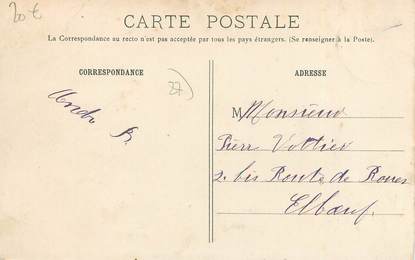 20 €
CARTE POSTALE
La Correspondance au recto n'est pas acceptée par tous les pays étrangers. (Se renseigner à la Poste).
CORRESPONDANCE
ADRESSE
André B.
27
M Monsieur
Pierr Vottier
2 bis Route de Rouen
Elbeuf.